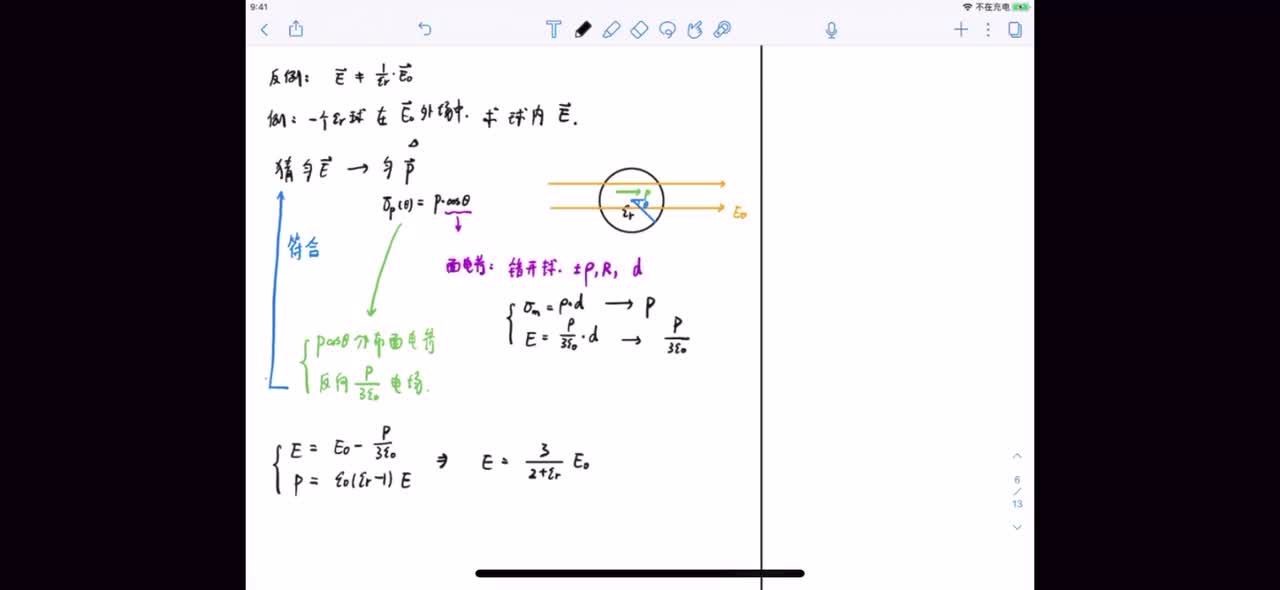 9:41
不在充电
反例: E⃗ ≠ 1/εr · E⃗₀
例: 一个εr球在E⃗₀外场中. 求球内E⃗.
猜匀E⃗ → 匀P⃗
σp(θ) = P·cosθ
P
θ
εr
E₀
符合
面电荷: 错开球. ±ρ, R, d
σm = ρ·d → P
E = ρ/3ε₀ · d → P/3ε₀
pcosθ分布面电荷
反向 P/3ε₀ 电场.
E = E₀ - P/3ε₀
P = ε₀(εr-1)E
⇒ E = 3/2+εr E₀
6
/
13